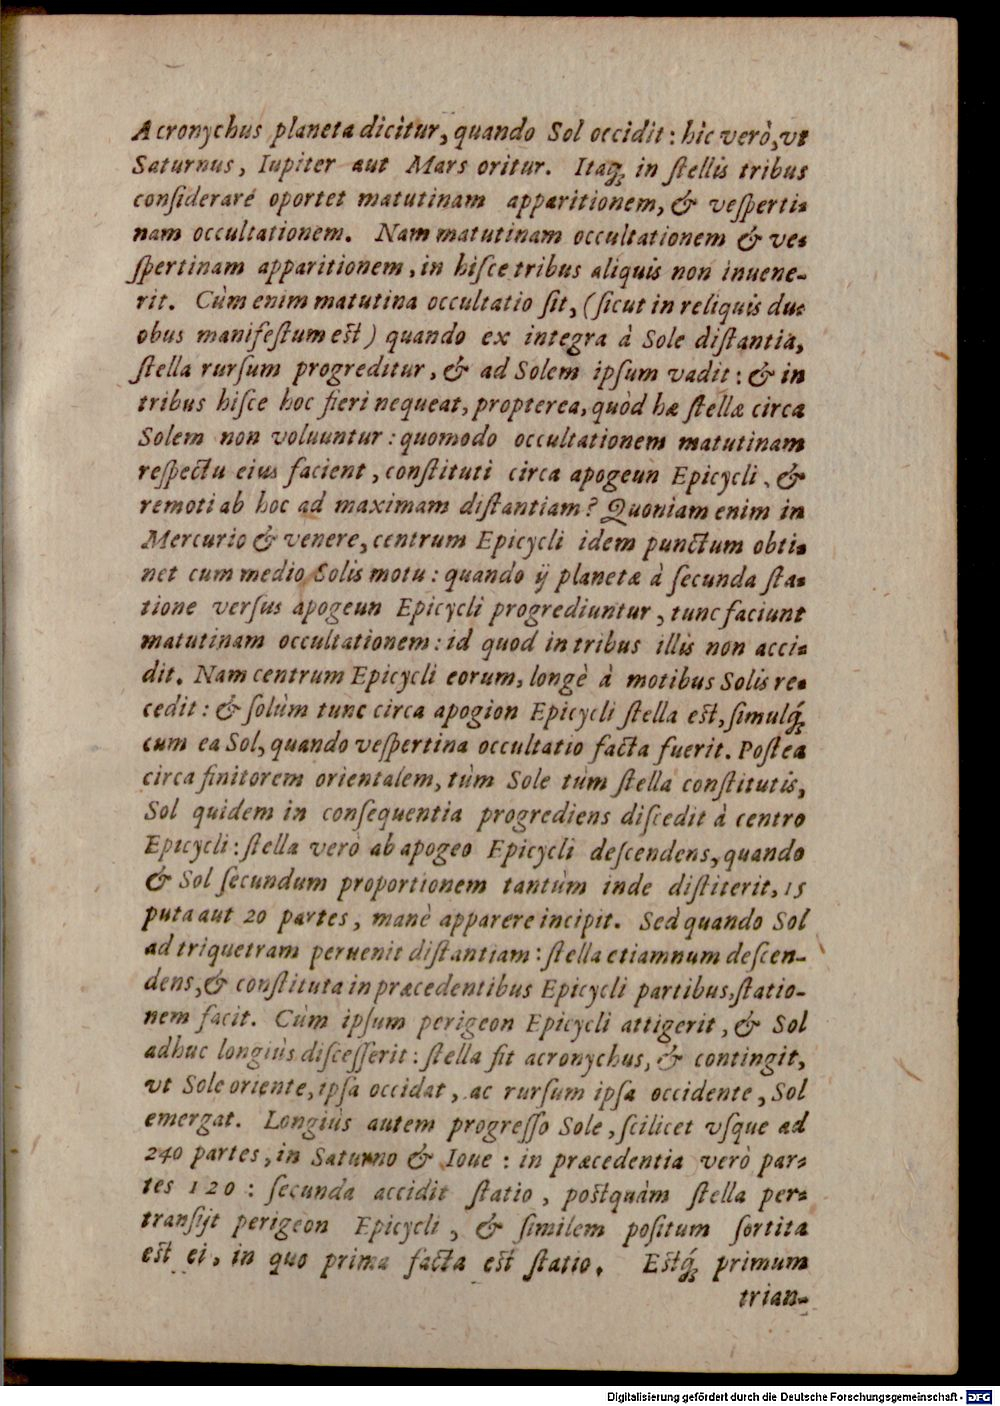 Acronychus planeta dicitur, quando Sol occidit: hic verò, vt
Saturnus, Iupiter aut Mars oritur. Itaq́; in ſtellis tribus
conſiderare oportet matutinam apparitionem, & veſperti-
nam occultationem. Nam matutinam occultationem & ve-
ſpertinam apparitionem, in hiſce tribus aliquis non inuene-
rit. Cùm enim matutina occultatio ſit, (ſicut in reliquis du-
obus manifeſtum est) quando ex integra à Sole diſtantia,
ſtella rurſum progreditur, & ad Solem ipſum vadit: & in
tribus hiſce hoc fieri nequeat, propterea, quòd hæ ſtellæ circa
Solem non voluuntur: quomodo occultationem matutinam
reſpectu eius facient, conſtituti circa apogeun Epicycli, &
remoti ab hoc ad maximam diſtantiam? Quoniam enim in
Mercurio & venere, centrum Epicycli idem punctum obti-
net cum medio Solis motu: quando ij planetæ à ſecunda ſta-
tione verſus apogeun Epicycli progrediuntur, tunc faciunt
matutinam occultationem: id quod in tribus illis non acci-
dit. Nam centrum Epicycli eorum, longè à motibus Solis re-
cedit: & ſolùm tunc circa apogion Epicycli ſtella est, ſimulq́;
cum ea Sol, quando veſpertina occultatio facta fuerit. Poſtea
circa finitorem orientalem, tùm Sole tùm ſtella conſtitutis,
Sol quidem in conſequentia progrediens diſcedit à centro
Epicycli: ſtella verò ab apogeo Epicycli deſcendens, quando
& Sol ſecundum proportionem tantùm inde diſtiterit, 15
puta aut 20 partes, manè apparere incipit. Sed quando Sol
ad triquetram peruenit diſtantiam: ſtella etiamnum deſcen-
dens, & conſtituta in præcedentibus Epicycli partibus, ſtatio-
nem facit. Cùm ipſum perigeon Epicycli attigerit, & Sol
adhuc longiùs diſceſſerit: ſtella fit acronychus, & contingit,
vt Sole oriente, ipſa occidat, ac rurſum ipſa occidente, Sol
emergat. Longiùs autem progreſſo Sole, ſcilicet vſque ad
240 partes, in Saturno & Ioue: in præcedentia verò par-
tes 120: ſecunda accidit ſtatio, postquàm ſtella per-
tranſijt perigeon Epicycli, & ſimilem poſitum ſortita
est ei, in quo prima facta est ſtatio. Estq́; primum
trian-
Digitalisierung gefördert durch die Deutsche Forschungsgemeinschaft - DFG